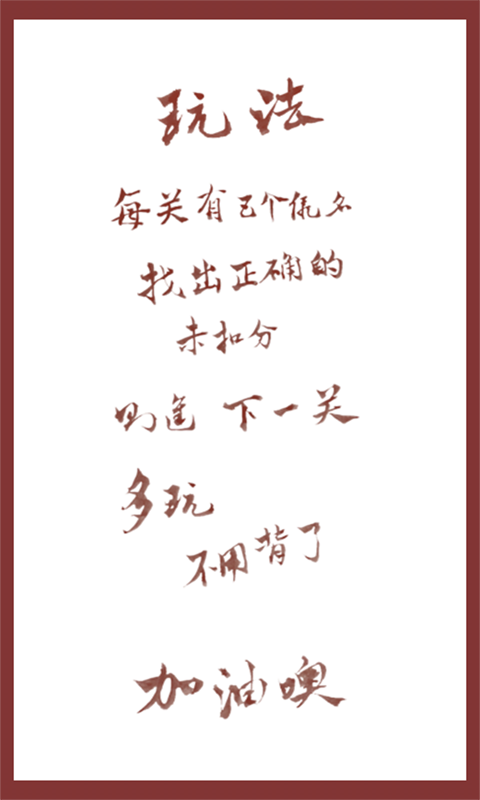 玩法
每关有 个 名
找出正确的
未扣分
则進下一关
多玩
不用背了
加油噢